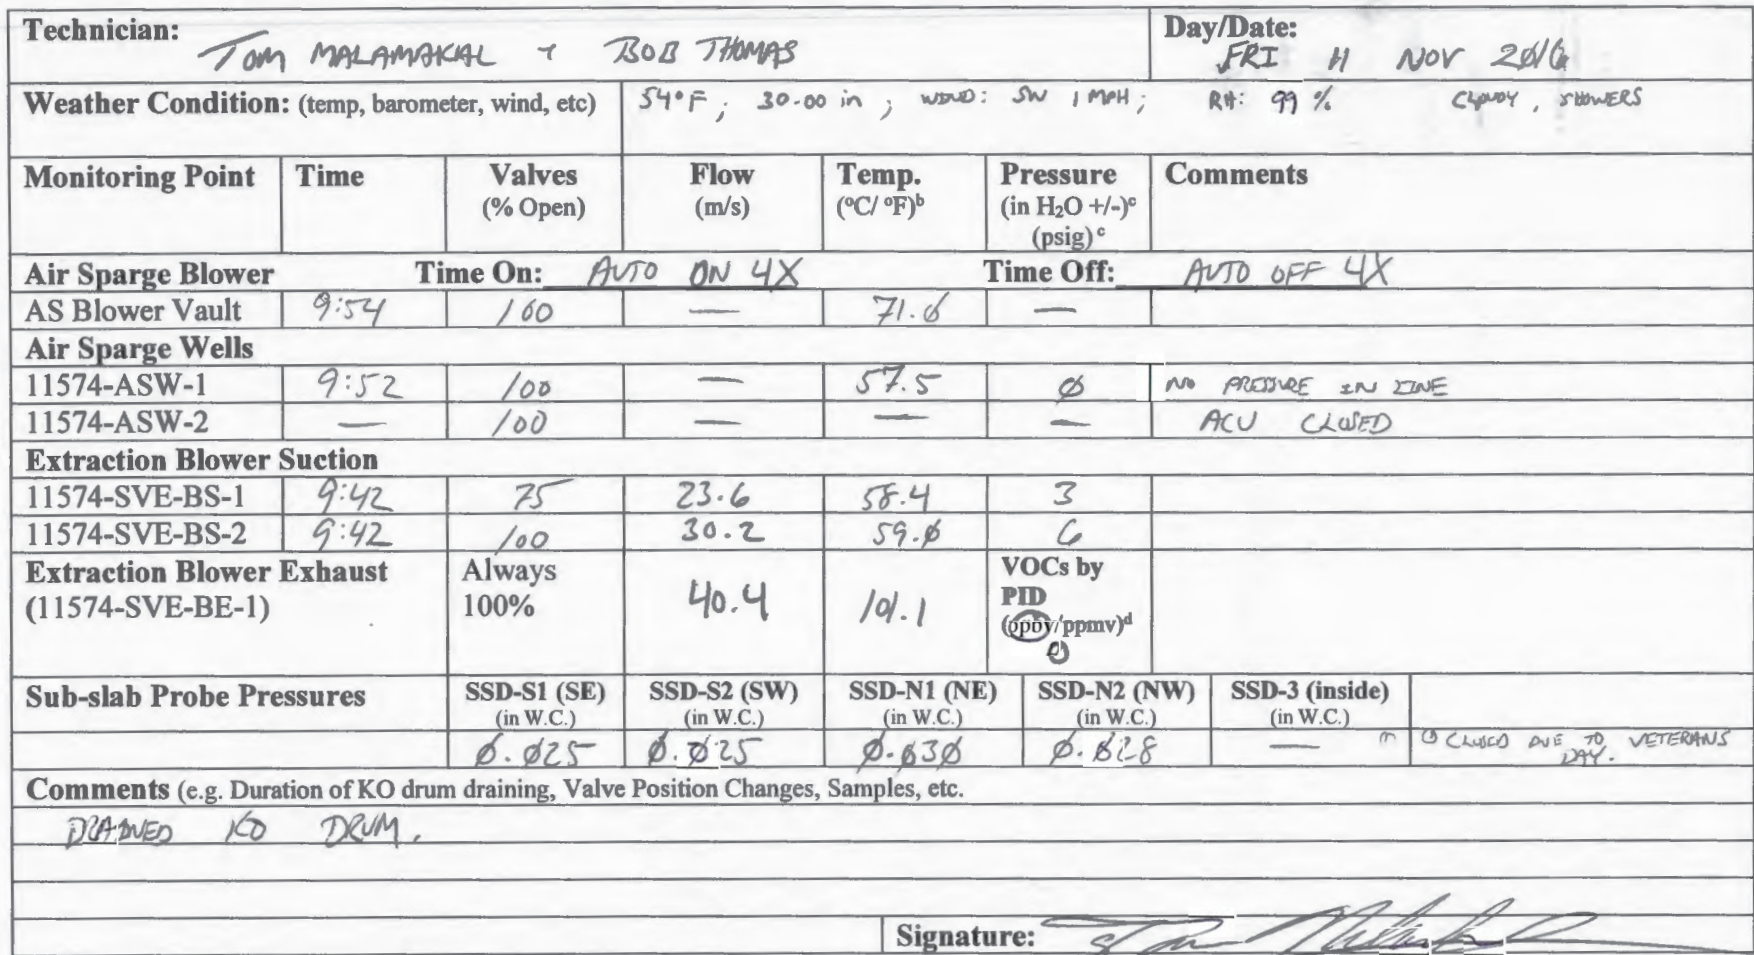 Technician: TOM MALAMAKAL + BOB THOMAS Day/Date: FRI 11 NOV 2016
Weather Condition: (temp, barometer, wind, etc) 54°F; 30.00 in; WIND: SW 1 MPH; RH: 99 % CLOUDY, SHOWERS
Monitoring Point Time Valves Flow Temp. Pressure Comments
(% Open) (m/s) (°C/ °F)b (in H2O +/-)c
(psig) c
Air Sparge Blower Time On: AUTO ON 4X Time Off: AUTO OFF 4X
AS Blower Vault 9:54 100 — 71.0 —
Air Sparge Wells
11574-ASW-1 9:52 100 — 57.5 0 NO PRESSURE IN LINE
11574-ASW-2 — 100 — — — ACU CLOSED
Extraction Blower Suction
11574-SVE-BS-1 9:42 75 23.6 58.4 3
11574-SVE-BS-2 9:42 100 30.2 59.0 6
Extraction Blower Exhaust Always 40.4 101.1 VOCs by
(11574-SVE-BE-1) 100% PID
(ppbv/ppmv)d
0
Sub-slab Probe Pressures SSD-S1 (SE) SSD-S2 (SW) SSD-N1 (NE) SSD-N2 (NW) SSD-3 (inside)
(in W.C.) (in W.C.) (in W.C.) (in W.C.) (in W.C.)
0.025 0.025 0.030 0.028 — (1) (1) CLOSED DUE TO VETERANS
DAY.
Comments (e.g. Duration of KO drum draining, Valve Position Changes, Samples, etc.
DRAINED KO DRUM.
Signature: